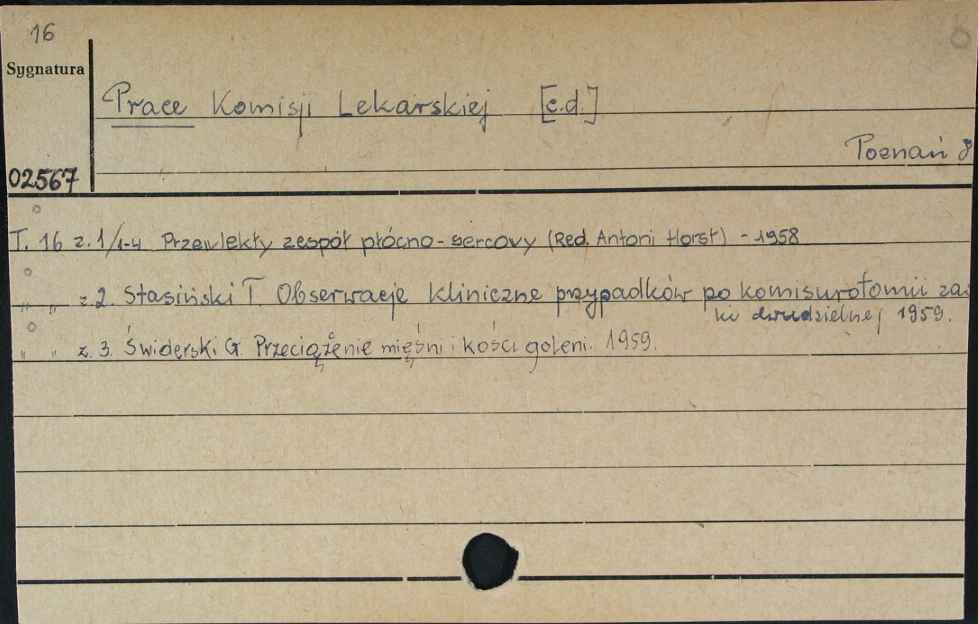 16
Sygnatura
Prace Komisji Lekarskiej [c.d.]
Poznań 8
02567
T. 16 z. 1/1-4 Przewlekły zespół płócno-sercowy (Red. Antoni Horst) - 1958
" " z. 2. Stasiński T Obserwacje kliniczne przypadków po komisurotomii zas
ki dwudzielnej 1959.
" " z. 3. Świderski G. Przeciążenie mięśni i kości goleni. 1959.